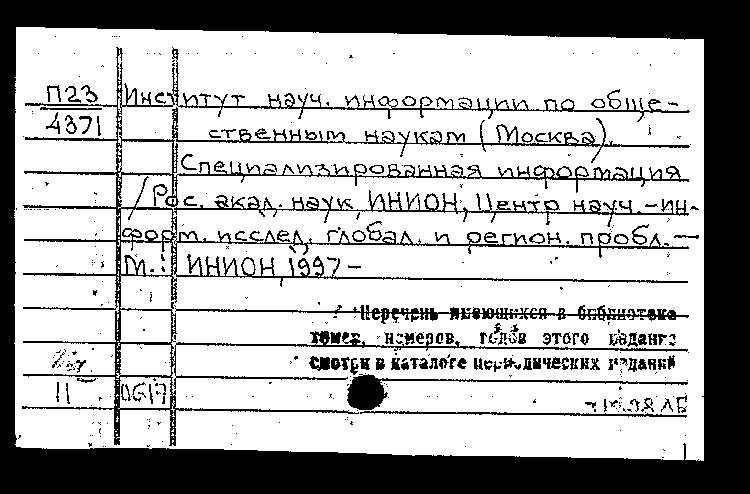 П23 Институт науч. информации по обще-
4371 ственным наукам (Москва).
Специализированная информация
/Рос. акад. наук, ИНИОН, Центр науч.-ин-
форм. исслед. глобал. и регион. пробл. —
М.: ИНИОН, 1997 —
Перечень имеющихся в библиотеке
томов, номеров, годов этого издания
смотри в каталоге периодических изданий
11 0617